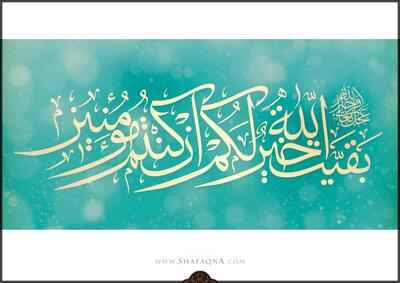 بقیّت الله خیرٌ لکم ان کنتم مؤمنین
www.ShafaqnA.com